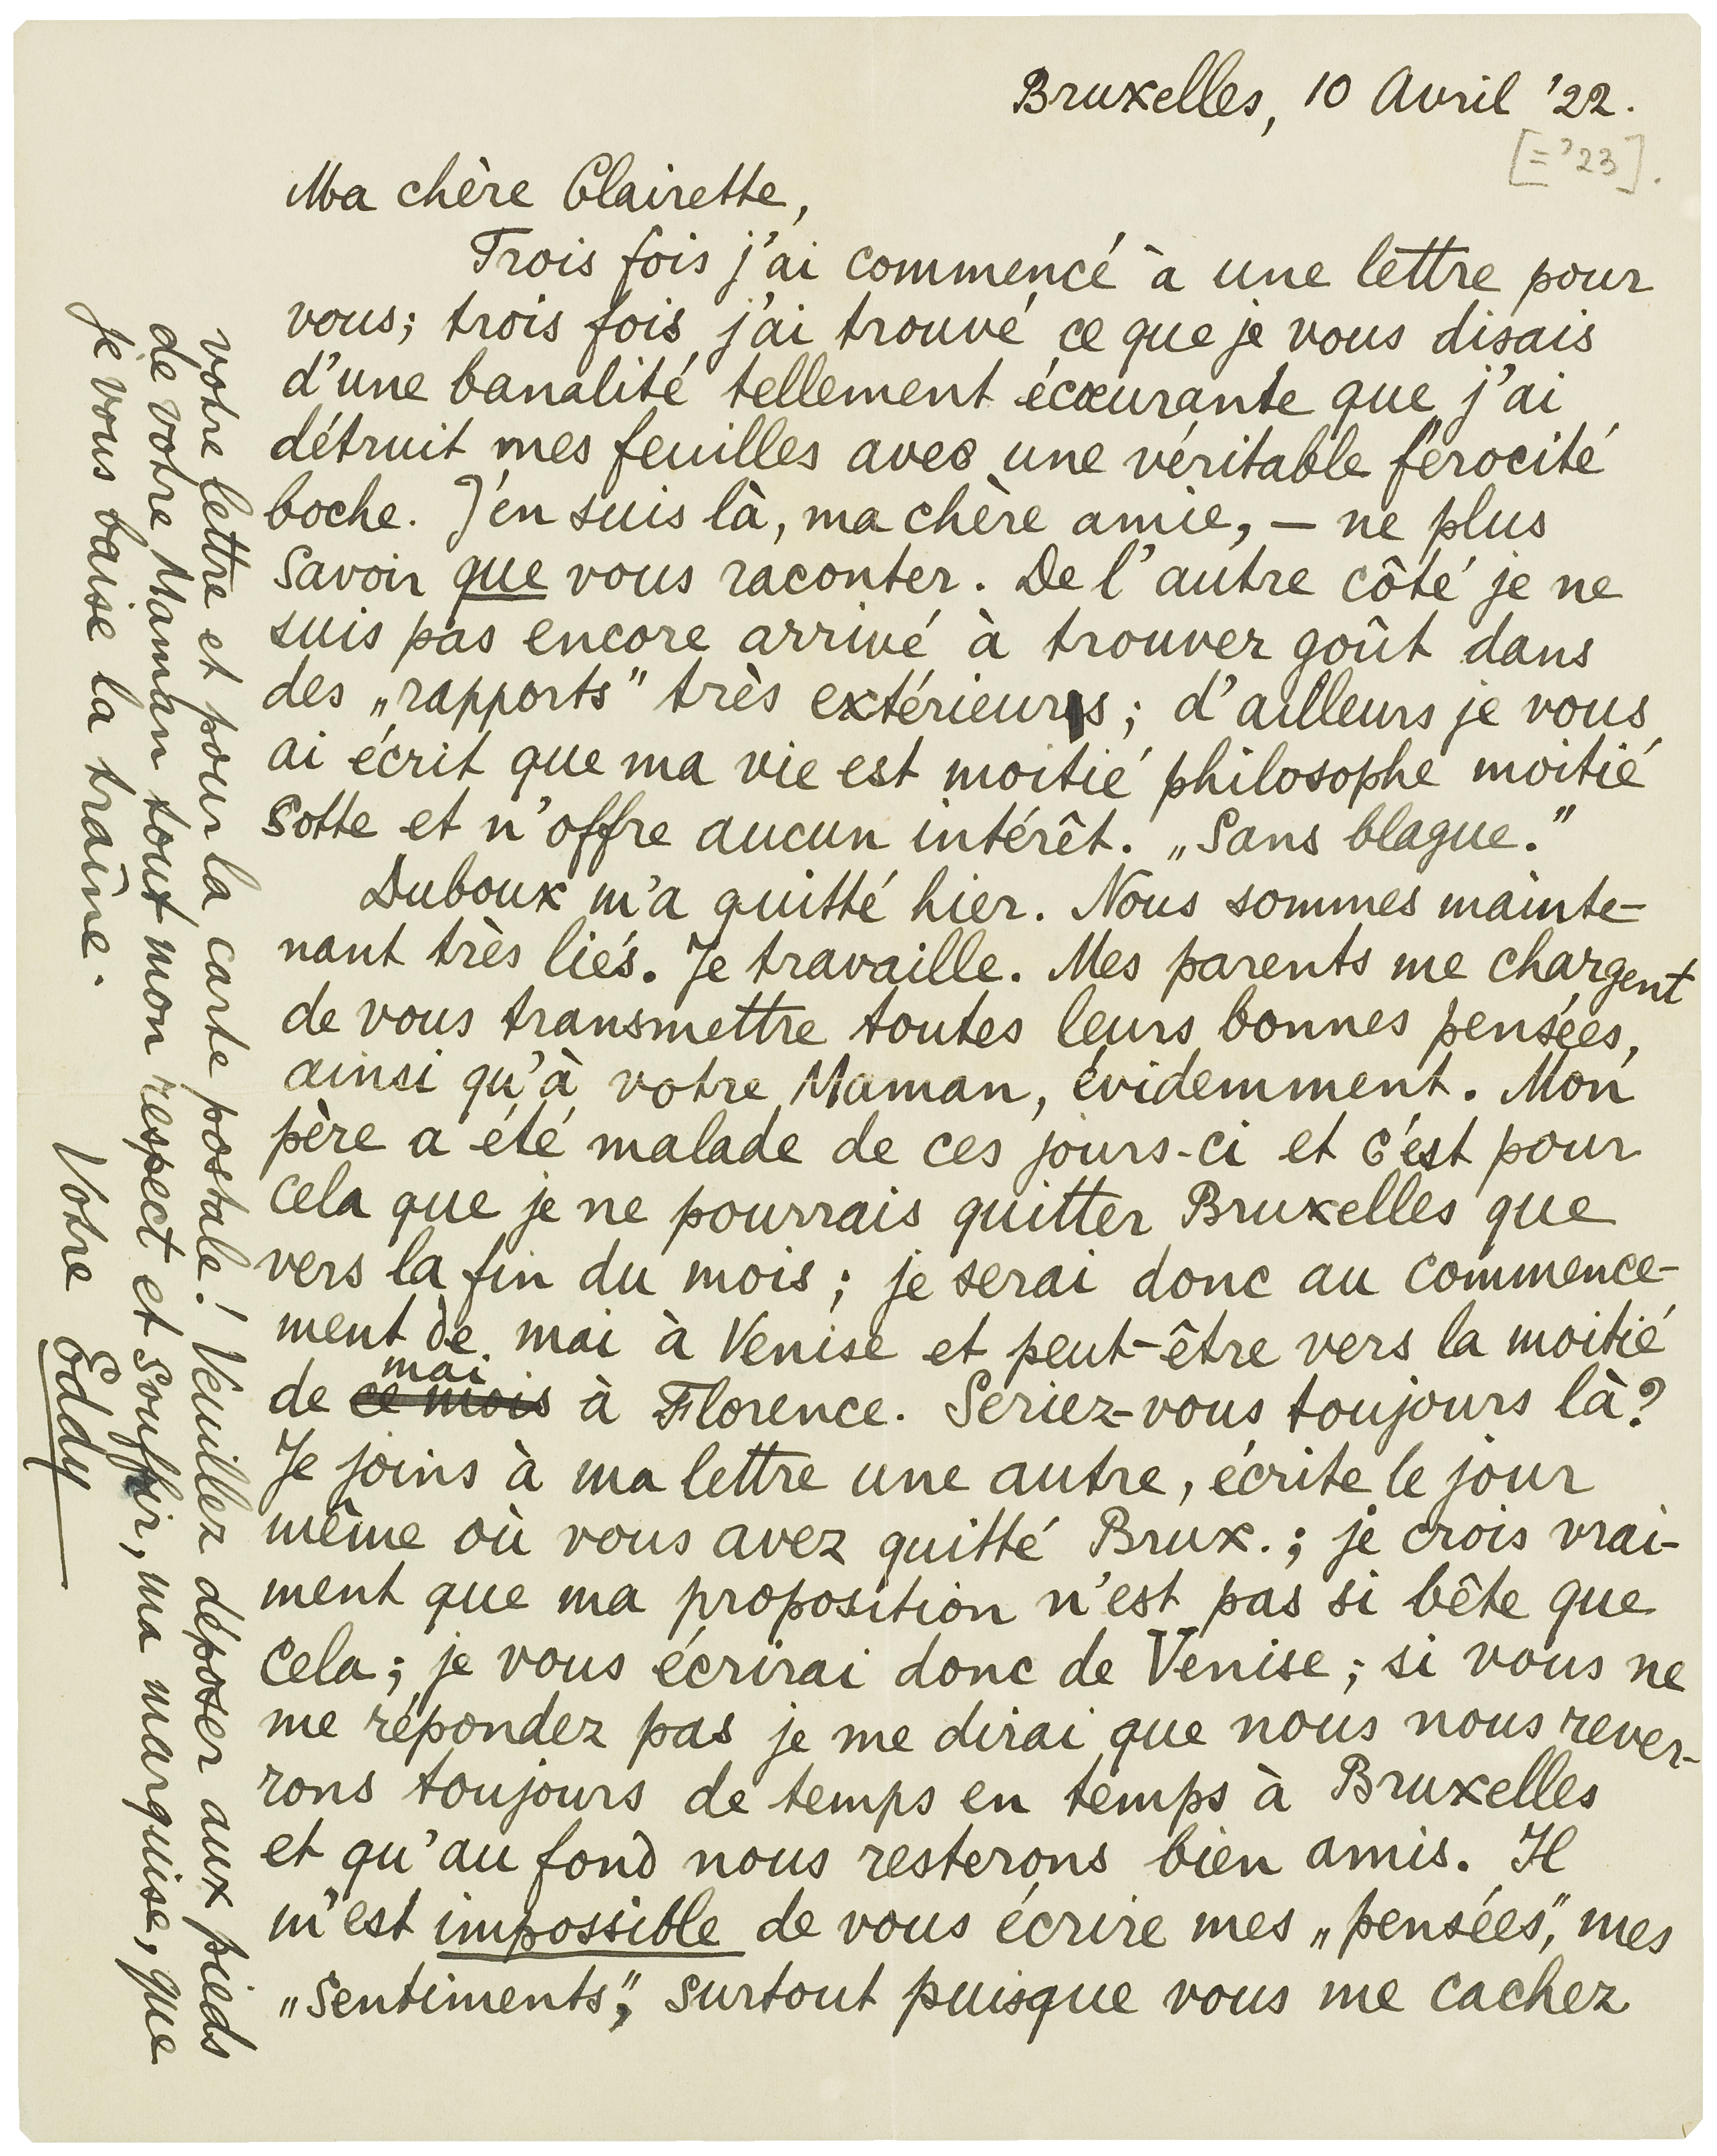 Bruxelles, 10 Avril '22.
[= '23].
Ma chère Clairette,
Trois fois j'ai commencé à une lettre pour
vous; trois fois j'ai trouvé ce que je vous disais
d'une banalité tellement écœurante que j'ai
détruit mes feuilles avec une véritable férocité
boche. J'en suis là, ma chère amie, – ne plus
savoir que vous raconter. De l'autre côté je ne
suis pas encore arrivé à trouver goût dans
des „rapports" très extérieurs; d'ailleurs je vous
ai écrit que ma vie est moitié philosophe moitié
sotte et n'offre aucun intérêt. „Sans blague."
Duboux m'a quitté hier. Nous sommes mainte-
nant très liés. Je travaille. Mes parents me chargent
de vous transmettre toutes leurs bonnes pensées,
ainsi qu'à votre Maman, évidemment. Mon
père a été malade de ces jours-ci et c'est pour
cela que je ne pourrais quitter Bruxelles que
vers la fin du mois; je serai donc au commence-
ment de mai à Venise et peut-être vers la moitié
mai
de ce mois à Florence. Seriez-vous toujours là?
Je joins à ma lettre une autre, écrite le jour
même où vous avez quitté Brux.; je crois vrai-
ment que ma proposition n'est pas si bête que
cela; je vous écrirai donc de Venise; si vous ne
me répondez pas je me dirai que nous nous rever-
rons toujours de temps en temps à Bruxelles
et qu'au fond nous resterons bien amis. Il
m'est impossible de vous écrire mes „pensées", mes
„sentiments", surtout puisque vous me cachez
votre lettre et pour la carte postale! Veuillez déposer aux pieds
de votre Maman tout mon respect et souffrir, ma marquise, que
je vous baise la traîne.
Votre Eddy